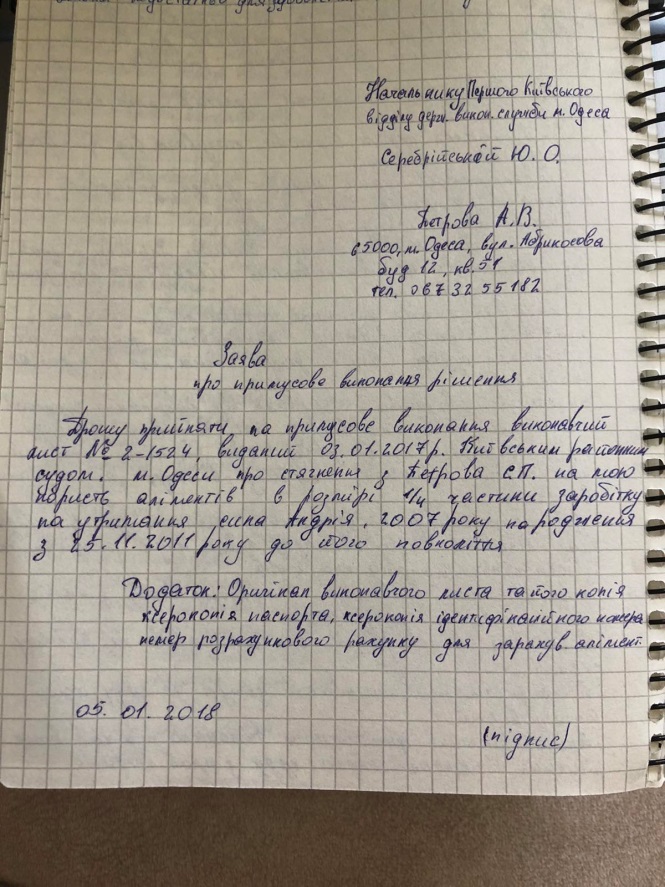 Начальнику Першого Київського
відділу держ. викон. служби м. Одеса
Серебрійській Ю. О.
Петрова А.В.
65000, м. Одеса, вул. Абрикосова
буд 12, кв. 51
тел. 067 32 55 182
Заява
про примусове виконання рішення
Прошу прийняти на примусове виконання виконавчий
лист № 2-1524, виданий 03.01.2017р. Київським районним
судом. м. Одеси про стягнення з Петрова Є.П. на мою
користь аліментів в розмірі 1/4 частини заробітку
на утримання сина Андрія, 2007 року народження
з 25.11.2011 року до його повноліття
Додаток: Оригінал виконавчого листа та його копія
ксерокопія паспорта, ксерокопія ідентифікаційного номера
номер розрахункового рахунку для зарахув. алімент.
05. 01. 2018
(підпис)